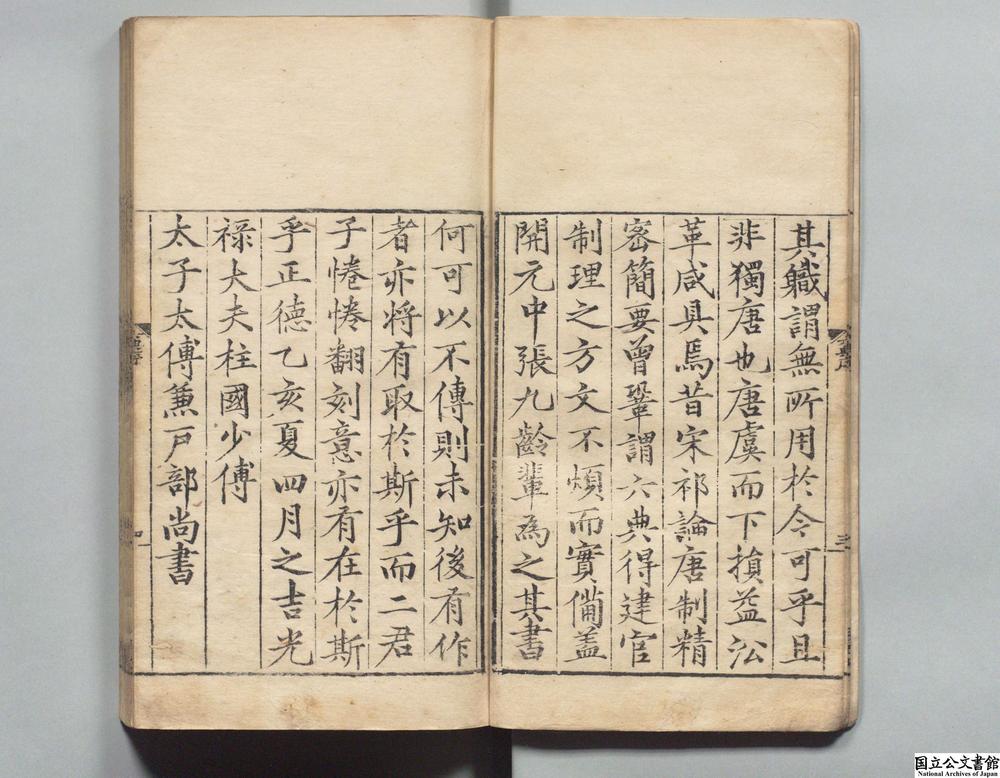 其軄謂無所用於今可乎且
非獨唐也唐虞而下損益㳂
革咸具焉昔宋祁論唐制精
宻簡要曾鞏謂六典得建官
制理之方文不煩而實備盖
開元中張九齡輩為之其書
何可以不傳則未知後有作
者亦将有取於斯乎而二君
子惓惓翻刻意亦有在於斯
乎正德乙亥夏四月之吉光
禄大夫柱國少傅
太子太傅兼戸部尚書
三
四
国立公文書館
National Archives of Japan